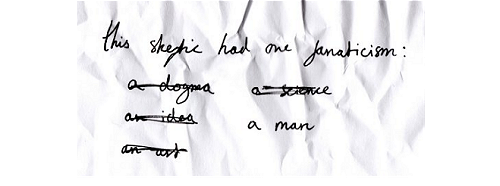 this skeptic had one fanaticism:
a dogma
an idea
an art
a science
a man